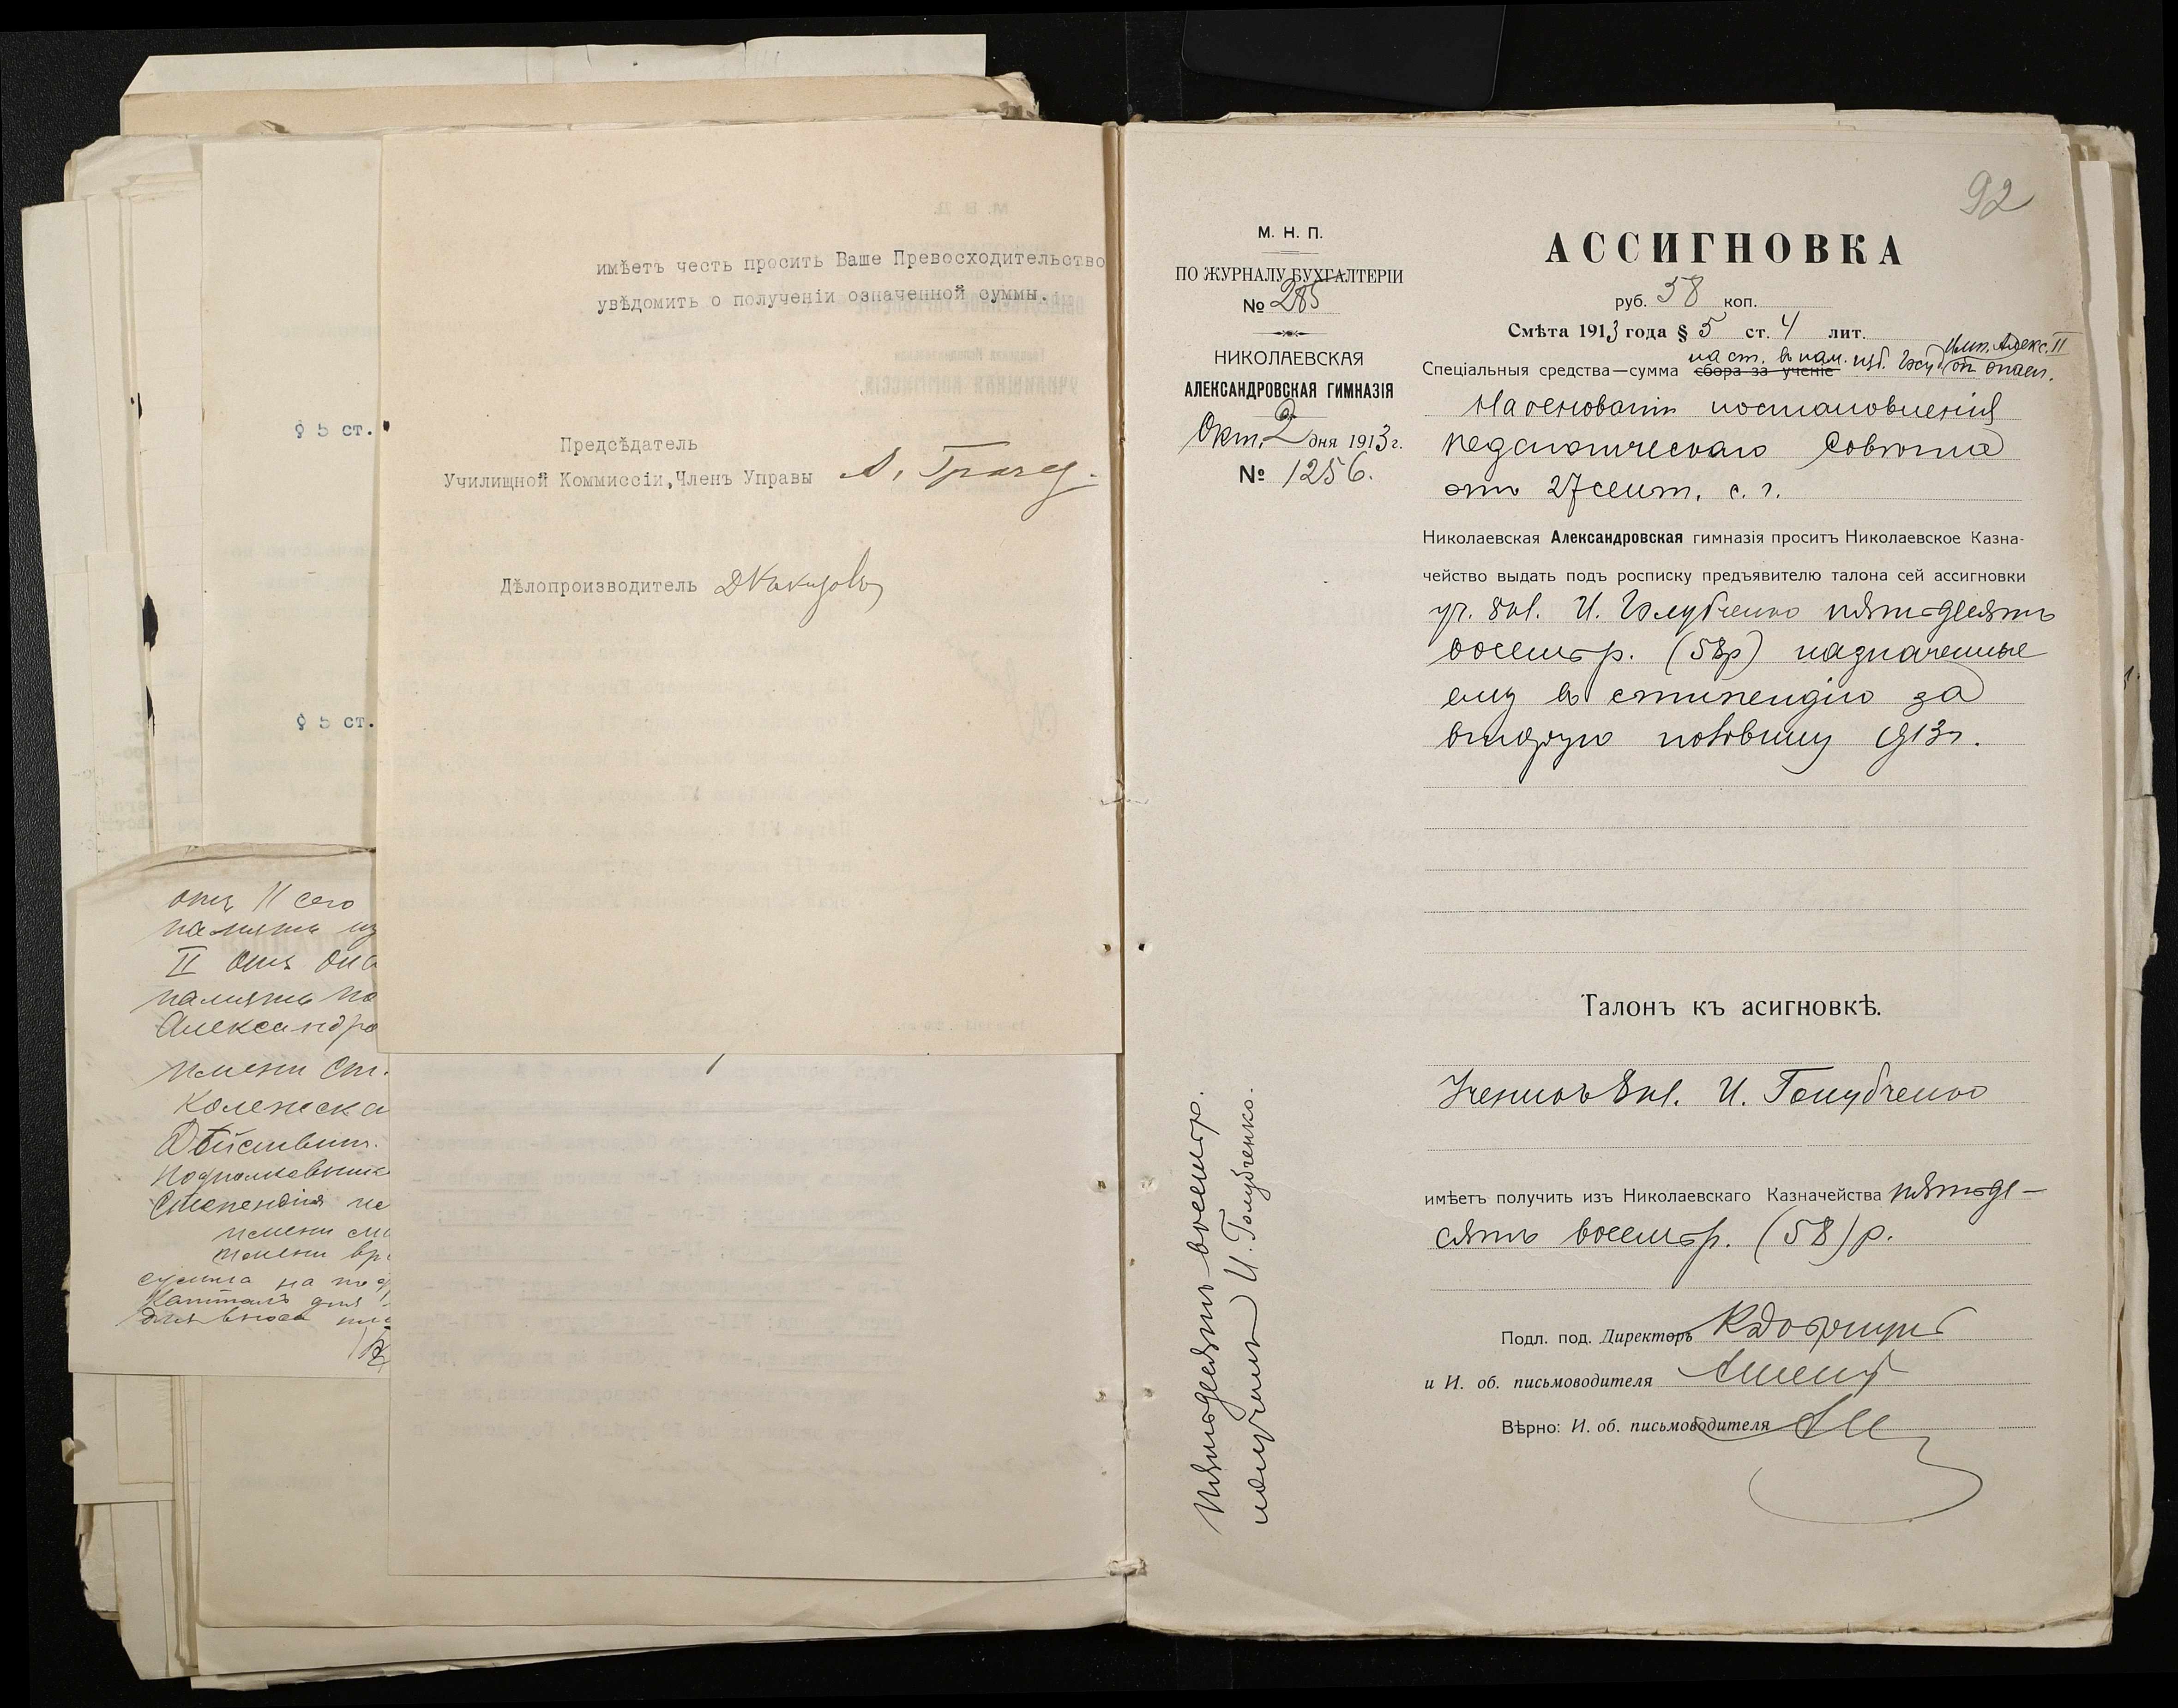 имѣетъ честь просить Ваше Превосходительство
увѣдомить о полученіи означенной суммы.
Предсѣдатель
Училищной Коммиссіи, Членъ Управы
Дѣлопроизводитель
§ 5 ст.
§ 5 ст.
отъ 11 сего
память из
II отъ опа
память по
Александро
имени Ст.
Колежска
Дѣйствит.
Подполковник
Стипендія
имени
имени вр
сумма на под
Капиталъ для
для взноса
92
М. Н. П.
ПО ЖУРНАЛУ БУХГАЛТЕРІИ
№ 285
НИКОЛАЕВСКАЯ
АЛЕКСАНДРОВСКАЯ ГИМНАЗІЯ
Окт. 2 дня 1913 г.
№ 1256.
АССИГНОВКА
руб. 58 коп.
Смѣта 1913 года § 5 ст. 4 лит.
Имп. Алекс. II
на ст. в пам. изб. Госуд. от опасн.
Спеціальныя средства—сумма сбора за ученіе
На основаніи постановленія
педагогическаго Совѣта
отъ 27 сент. с. г.
Николаевская Александровская гимназія проситъ Николаевское Казна-
чейство выдать подъ росписку предъявителю талона сей ассигновки
уч. 8 кл. И. Голубченко пятьдесятъ
восемь р. (58 р) назначенные
ему въ стипендію за
вторую половину 1913 г.
Талонъ къ асигновкѣ.
Ученикъ 8 кл. И. Голубченко
имѣетъ получить изъ Николаевскаго Казначейства пятьде-
сятъ восемь р. (58) р.
Подл. под. Директоръ
и И. об. письмоводителя
Вѣрно: И. об. письмоводителя
Пятьдесятъ восемь р.
получилъ И. Голубченко.